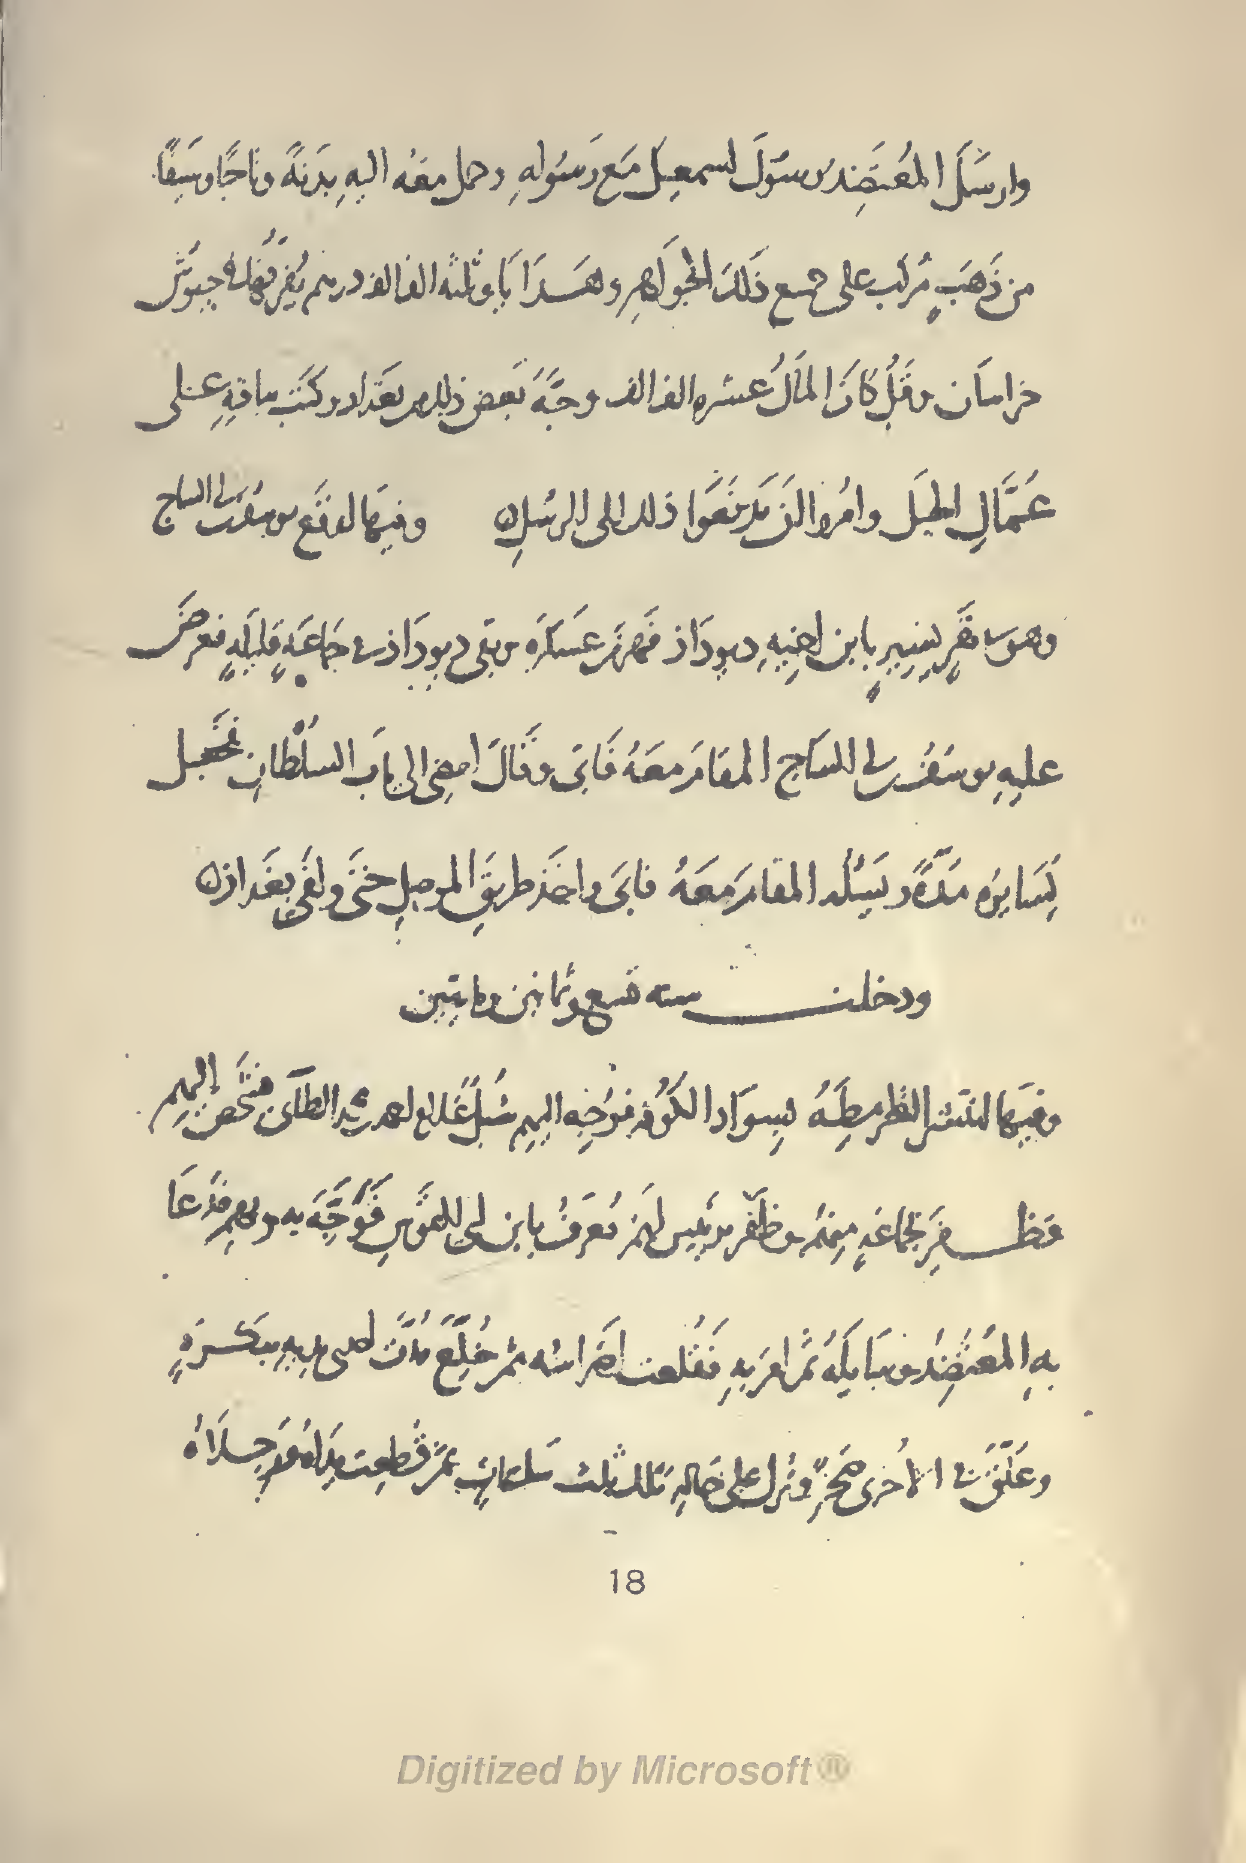 وارسَلَ المُعتَضِد رسُولَ اسمعيل مَع رَسُولهِ وحمل معَه اليهِ بَدَنةً وتاجًا وسَيفًا
من ذَهَبٍ مُركَب على جميع ذَلك الجَواهر وهَدَايَا وثلثه الف الف درهم يُفرّقها في جيوش
خراسَان وقيل كانَ المالُ عشره الف الف وجّهَ بَعض ذلك من بغداد وكتب بباقيهِ على
عُمَّالِ الجبَل وامُروا ان يَدفَعوا ذلك الى الرسُلِ ٥ وفيها اوقع يوسُف بن ابي الساج
وهو في نفرٍ يسيرٍ بابن اخيهِ ديوداذ فهزمَ عَسكرَه وبقى ديودَاذ في جَماعَةٍ قليلَهٍ فعرضَ
عليهِ يوسُفُ بن ابي السَاج المقامَ معَهُ فَابَى وقَالَ امضى الى بابَ السُلْطانِ فجَعل
يُسَايرُه مُدّةً ويَسئله المقامَ معَهُ فابى واخذ طريق الموصِلِ حتى وافى بغداد ٥
ودخلت سنه تسع وثمانين ومايتين
وفيها انتشر القرمطَهُ بسوَاد الكوفه فوُجه اليهم شبلٌ غلام احمد بن محمد الطائى فشَخَص اليهم
فظفِرَ بجماعَةٍ مِنهُم وظَفِر برَئيس لهُم يُعرَفُ بابن ابي القَوس فَوَجَّهَ به وبهم فدَعَا
بهِ المُعتَضِدُ وسَايَلَهُ ثمَّ امَر بهِ فَقُلعت اضراسُه ثم خُلِعَ بمَدّ احدى يديهِ ببَكرَهٍ
وعَلّقَ في الاُخرى صَخرٌ وتُرك على حَالهِ تلك ثلث سَاعاتٍ ثمَّ قُطِعت يدَاهُ ورِجلاهُ
18
Digitized by Microsoft®